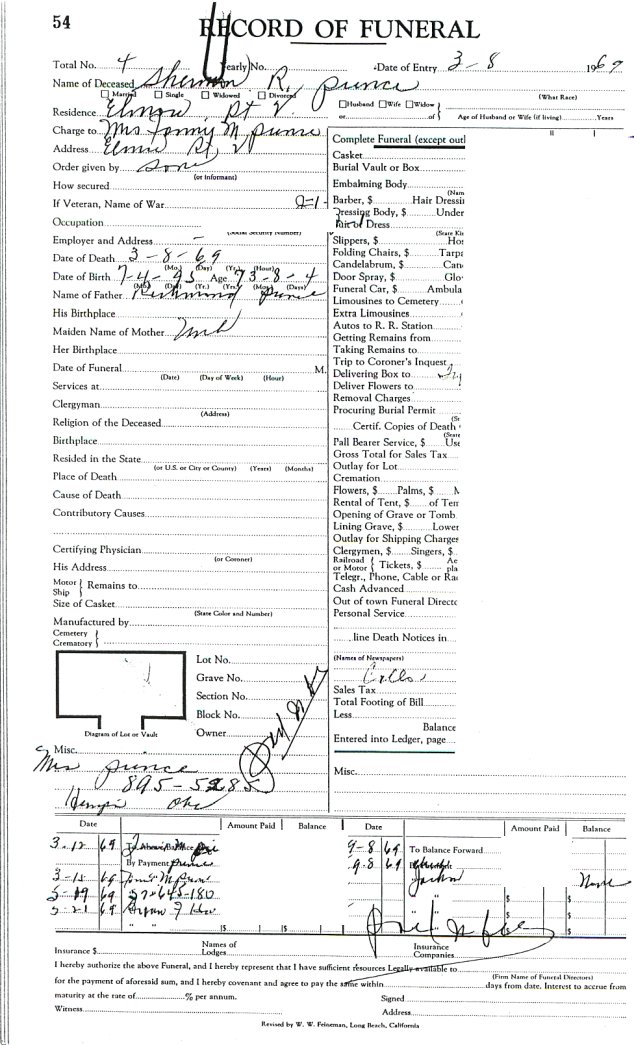 54
RECORD OF FUNERAL
Total No. 4 Yearly No. Date of Entry 3-8 1969
Name of Deceased Sherman R. Prince
Married Single Widowed Divorced (What Race)
Residence Rt
Husband Wife Widow
or of Age of Husband or Wife (if living) Years
Charge to Mrs Fanny M Prince
Address Rt
Order given by Sons
(or Informant)
How secured
If Veteran, Name of War
Occupation
(Social Security Number)
Employer and Address –
Date of Death 3-8-69
(Mo.) (Day) (Yr.) (Hour)
Date of Birth 7-4-95 Age 73-8-4
(Mo.) (Day) (Yr.) (Yrs.) (Mos.) (Days)
Name of Father Richmond Prince
His Birthplace
Maiden Name of Mother Unk
Her Birthplace
Date of Funeral M.
(Date) (Day of Week) (Hour)
Services at
Clergyman
(Address)
Religion of the Deceased
Birthplace
Resided in the State
(or U.S. or City or County) (Years) (Months)
Place of Death
Cause of Death
Contributory Causes
Certifying Physician
(or Coroner)
His Address
Motor
Ship
Remains to
Size of Casket
(State Color and Number)
Manufactured by
Cemetery
Crematory
Lot No.
Grave No.
Section No.
Block No.
Owner
Diagram of Lot or Vault
Misc.
Mrs Prince
895-5285
Complete Funeral (except outl
Casket
Burial Vault or Box
Embalming Body
(Nam
Barber, $ Hair Dressi
Dressing Body, $ Under
Pair of Dress
(State Kin
Slippers, $ Hos
Folding Chairs, $ Tarpa
Candelabrum, $ Can
Door Spray, $ Glo
Funeral Car, $ Ambula
Limousines to Cemetery
Extra Limousines
Autos to R. R. Station
Getting Remains from
Taking Remains to
Trip to Coroner's Inquest
Delivering Box to
Deliver Flowers to
Removal Charges
Procuring Burial Permit
(St
Certif. Copies of Death
(State
Pall Bearer Service, $ Use
Gross Total for Sales Tax
Outlay for Lot
Cremation
Flowers, $ Palms, $ M
Rental of Tent, $ of Tem
Opening of Grave or Tomb
Lining Grave, $ Lower
Outlay for Shipping Charges
Clergymen, $ Singers, $
Railroad
or Motor
Tickets, $
Ae
pla
Telegr., Phone, Cable or Rad
Cash Advanced
Out of town Funeral Directo
Personal Service
line Death Notices in
(Names of Newspapers)
Sales Tax
Total Footing of Bill
Less
Balance
Entered into Ledger, page
Misc.
Date Amount Paid Balance Date Amount Paid Balance
3-12 69 To Above Balance
By Payment Prince
3-15 69 M Prince
5-19 69 57-645-180
5-21 69
" " $ $
9-8 69 To Balance Forward
9-8 69 Jackson None
" " $ $
" "
" "
Insurance $ Names of Lodges Insurance Companies
I hereby authorize the above Funeral, and I hereby represent that I have sufficient resources Legally available to
(Firm Name of Funeral Directors)
for the payment of aforesaid sum, and I hereby covenant and agree to pay the same within days from date. Interest to accrue from
maturity at the rate of % per annum. Signed
Witness Address
Revised by W. W. Feineman, Long Beach, California